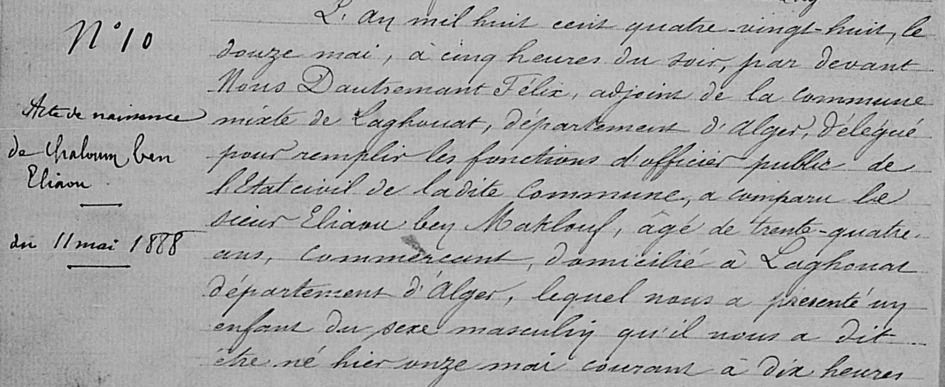 N° 10
Acte de naissance
de Chaloum ben
Eliaou
du 11 mai 1888
L'an mil huit cent quatre-vingt-huit, le
douze mai, à cinq heures du soir, par devant
Nous Dautremant Félix, adjoint de la commune
mixte de Laghouat, département d'Alger, délégué
pour remplir les fonctions d'officier public de
l'Etat civil de ladite commune, a comparu le
sieur Eliaou ben Maklouf, âgé de trente-quatre
ans, commerçant, domicilié à Laghouat
département d'Alger, lequel nous a présenté un
enfant du sexe masculin qu'il nous a dit
être né hier onze mai courant à dix heures